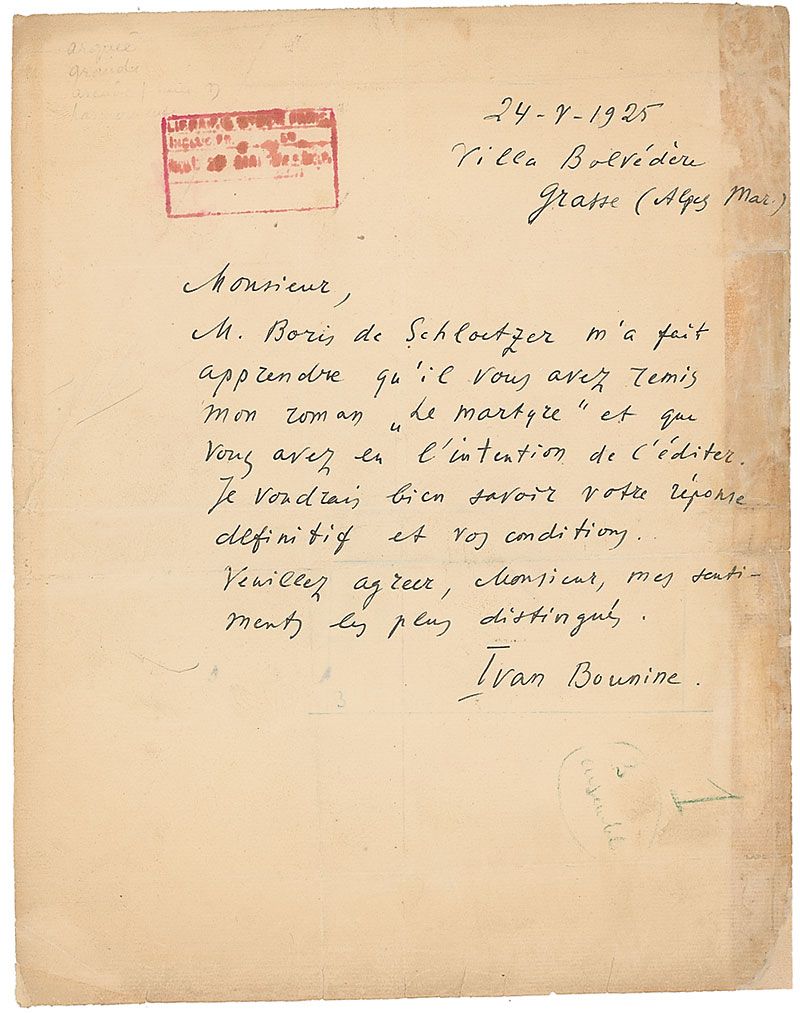 24-V-1925
Villa Bolvédère
Grasse (Alpes Mar.)
Monsieur,
M. Boris de Schloetzer m'a fait
apprendre qu'il vous avez remis
mon roman „Le martyre" et que
vous avez eu l'intention de l'éditer.
Je voudrais bien savoir votre réponse
definitif et vos conditions.
Veuillez agreer, Monsieur, mes senti-
ments les plus distingués.
Ivan Bounine.
3
1